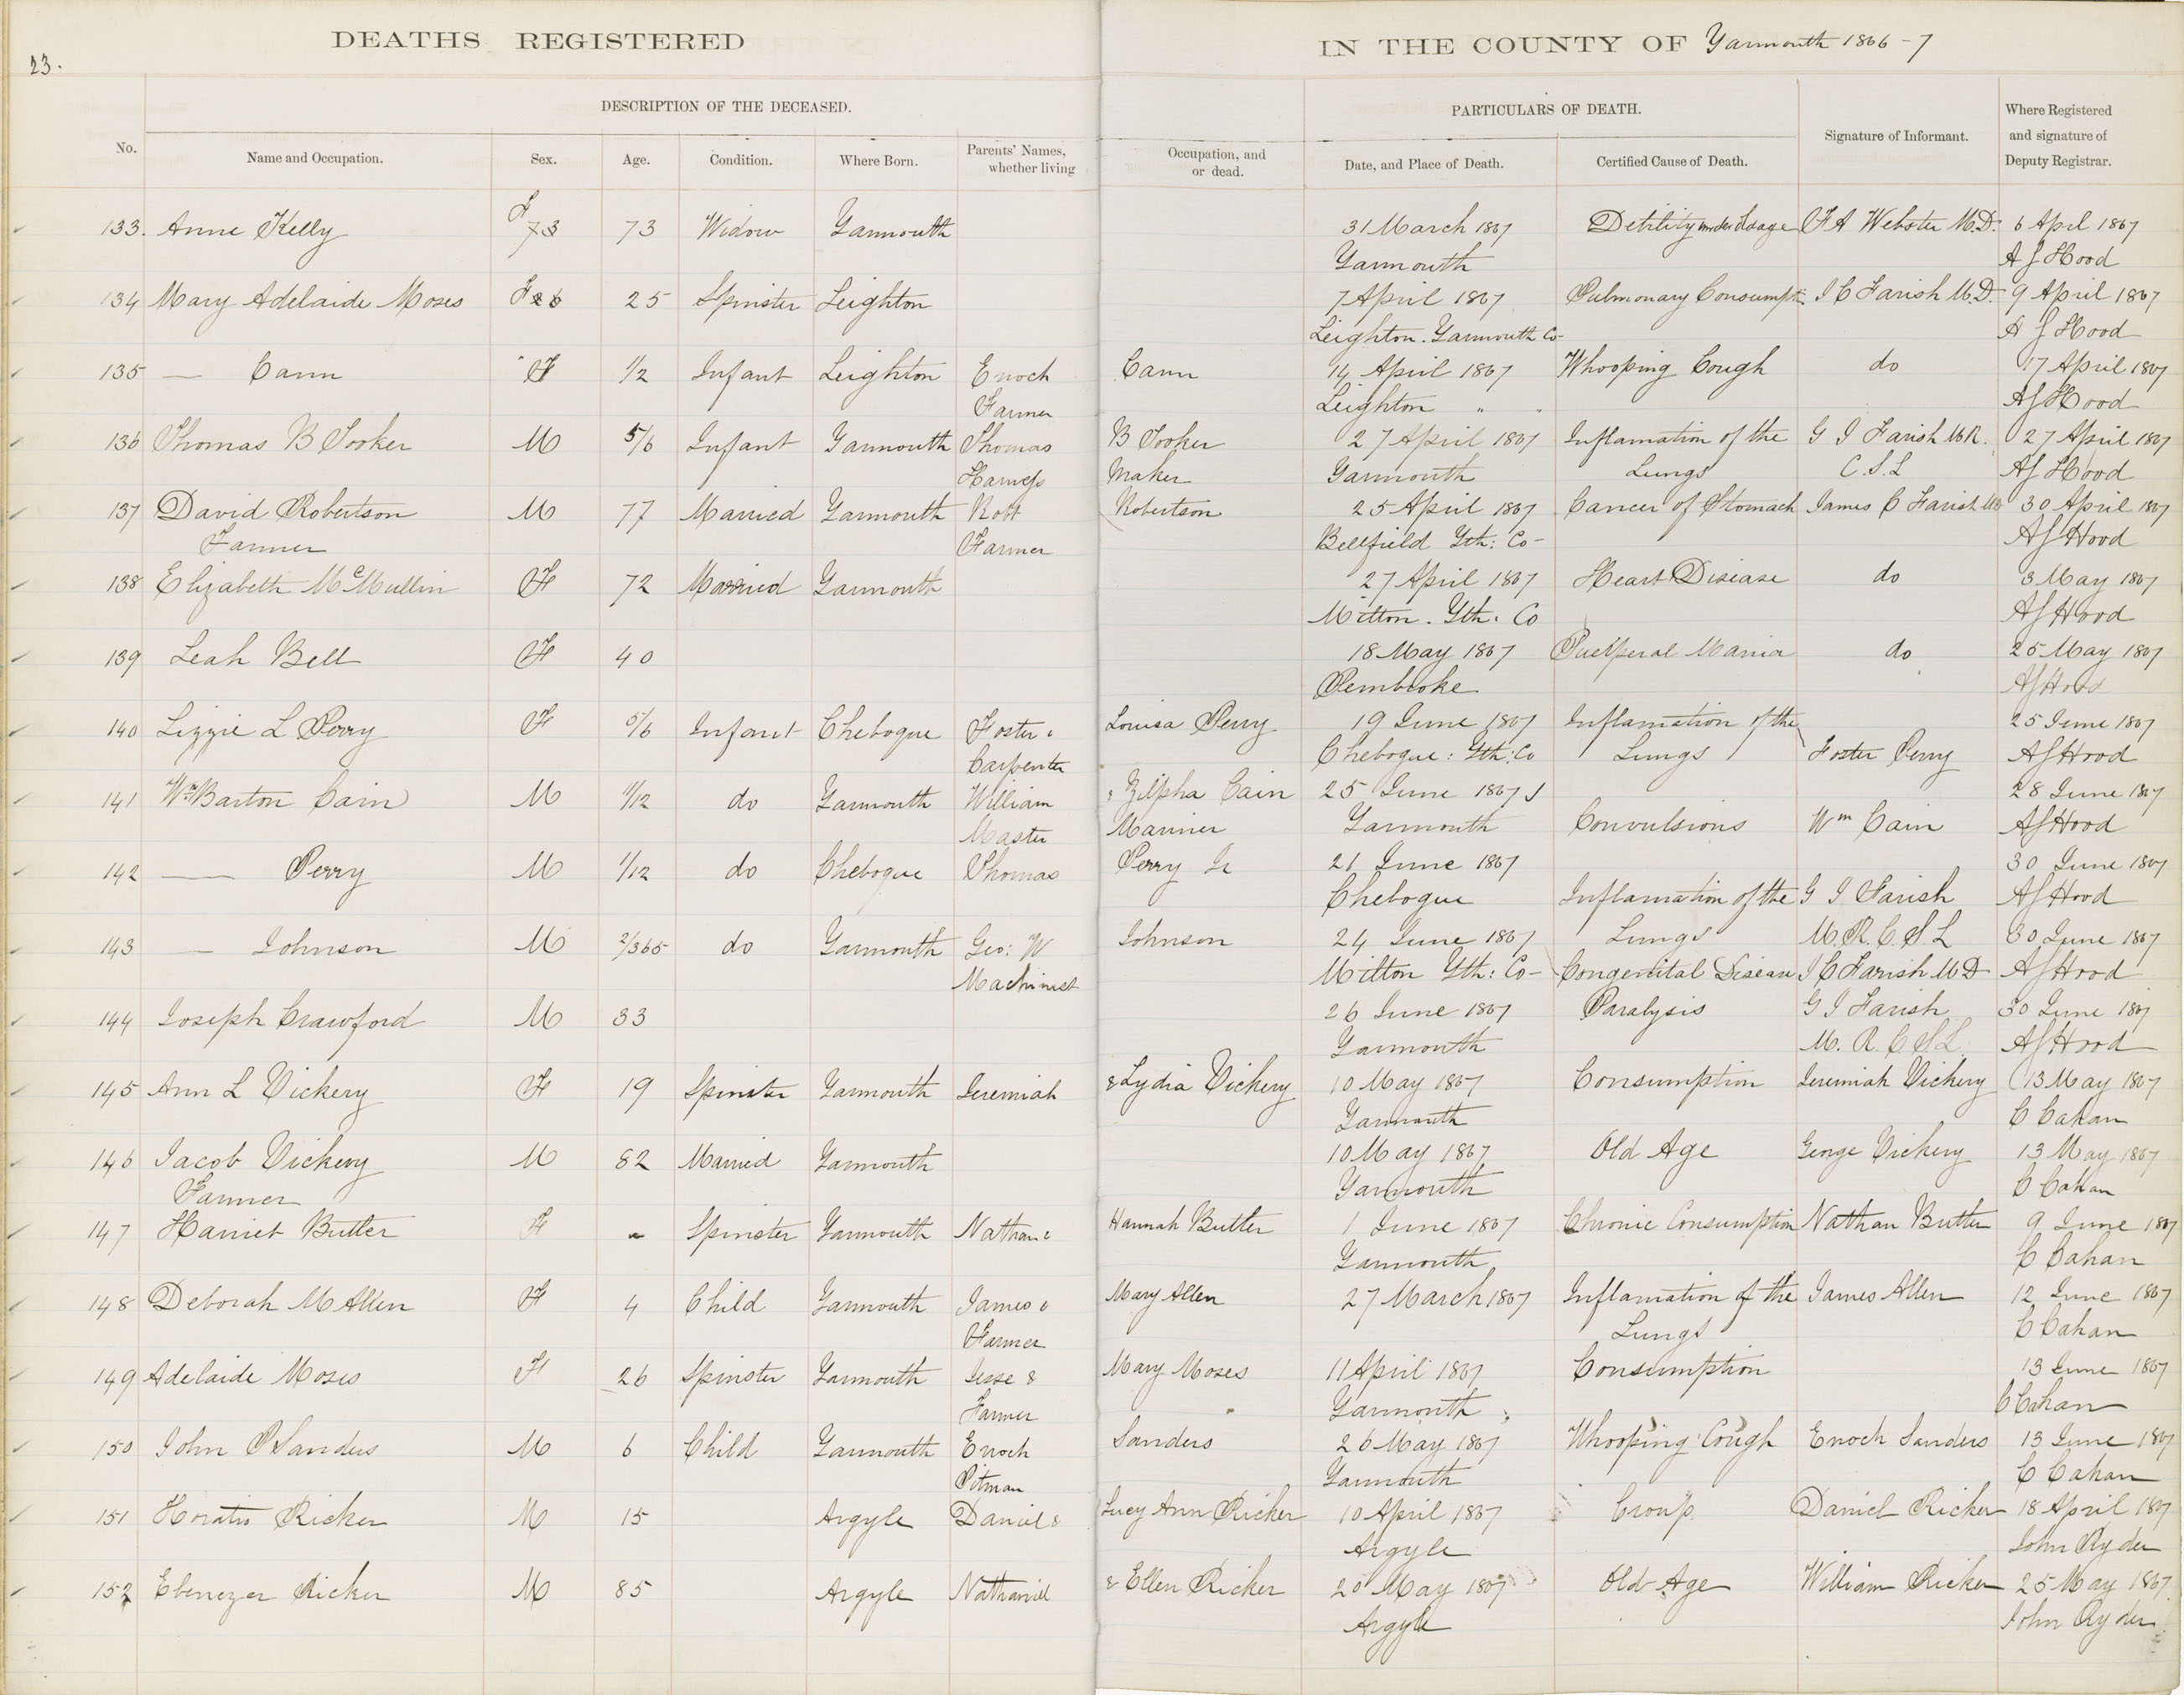 DEATHS REGISTERED IN THE COUNTY OF Yarmouth 1866-7
23.
DESCRIPTION OF THE DECEASED. PARTICULARS OF DEATH.
No. Name and Occupation. Sex. Age. Condition. Where Born. Parents' Names, whether living Occupation, and or dead. Date, and Place of Death. Certified Cause of Death. Signature of Informant. Where Registered and signature of Deputy Registrar.
133. Anne Kelly F 73 73 Widow Yarmouth 31 March 1867 Debility F A Webster M.D. 6 April 1867
Yarmouth A J Hood
134 Mary Adelaide Moses F 26 25 Spinster Leighton 7 April 1867 Pulmonary Consumpt. J C Farish M.D. 9 April 1867
Leighton. Yarmouth Co- A J Hood
135 — Cann F 1/2 Infant Leighton Enoch Cann 14 April 1867 Whooping Cough do 17 April 1867
Farmer Leighton " " AJHood
136 Thomas B Tooker M 5/6 Infant Yarmouth Thomas B Tooker 27 April 1867 Inflamation of the G J Farish M.R. 27 April 1867
Harness Maker Yarmouth Lungs C.S.L AJ Hood
137 David Robertson M 77 Married Yarmouth Robt Robertson 25 April 1867 Cancer of Stomach James C Farish MD 30 April 1867
Farmer Farmer Bellfield Yth: Co- AJ Hood
138 Elizabeth McMullin F 72 Married Yarmouth 27 April 1867 Heart Disease do 3 May 1867
Milton. Yth. Co AJHood
139 Leah Bell F 40 18 May 1867 Puerperal Mania do 25 May 1867
Pembroke AJHood
140 Lizzie L Perry F 5/6 Infant Chebogue Foster & Louisa Perry 19 June 1867 Inflamation of the 25 June 1867
Carpenter Chebogue: Yth: Co Lungs Foster Perry AJHood
141 Wm Barton Cain M 11/12 do Yarmouth William & Zilpha Cain 25 June 1867 28 June 1867
Master Mariner Yarmouth Convulsions Wm Cain AJHood
142 — Perry M 1/12 do Chebogue Thomas Perry Jr 21 June 1867 30 June 1867
Chebogue Inflamation of the G J Farish AJHood
143 — Johnson M 2/365 do Yarmouth Geo: W Johnson 24 June 1867 Lungs M.R.C.S.L 30 June 1867
Machinist Milton Yth: Co- Congenital Disease J C Farish M D AJHood
144 Joseph Crawford M 33 26 June 1867 Paralysis G J Farish 30 June 1867
Yarmouth M.R.C S L AJHood
145 Ann L Vickery F 19 Spinster Yarmouth Jeremiah & Lydia Vickery 10 May 1867 Consumption Jeremiah Vickery 13 May 1867
Yarmouth C Cahan
146 Jacob Vickery M 82 Married Yarmouth 10 May 1867 Old Age George Vickery 13 May 1867
Farmer Yarmouth C Cahan
147 Harriet Butler F - Spinster Yarmouth Nathan & Hannah Butler 1 June 1867 Chronic Consumption Nathan Butler 9 June 1867
Yarmouth C Cahan
148 Deborah M Allen F 4 Child Yarmouth James & Mary Allen 27 March 1867 Inflamation of the James Allen 12 June 1867
Farmer Lungs C Cahan
149 Adelaide Moses F 26 Spinster Yarmouth Jesse & Mary Moses 11 April 1867 Consumption 13 June 1867
Farmer Yarmouth C Cahan
150 John P Sanders M 6 Child Yarmouth Enoch Sanders 26 May 1867 Whooping Cough Enoch Sanders 13 June 1867
Pitman Yarmouth C Cahan
151 Horatio Ricker M 15 Argyle Daniel & Lucy Ann Ricker 10 April 1867 Croup. Daniel Ricker 18 April 1867
Argyle John Ryder
152 Ebenezer Ricker M 85 Argyle Nathaniel & Ellen Ricker 20 May 1867 Old Age William Ricker 25 May 1867
Argyle John Ryder